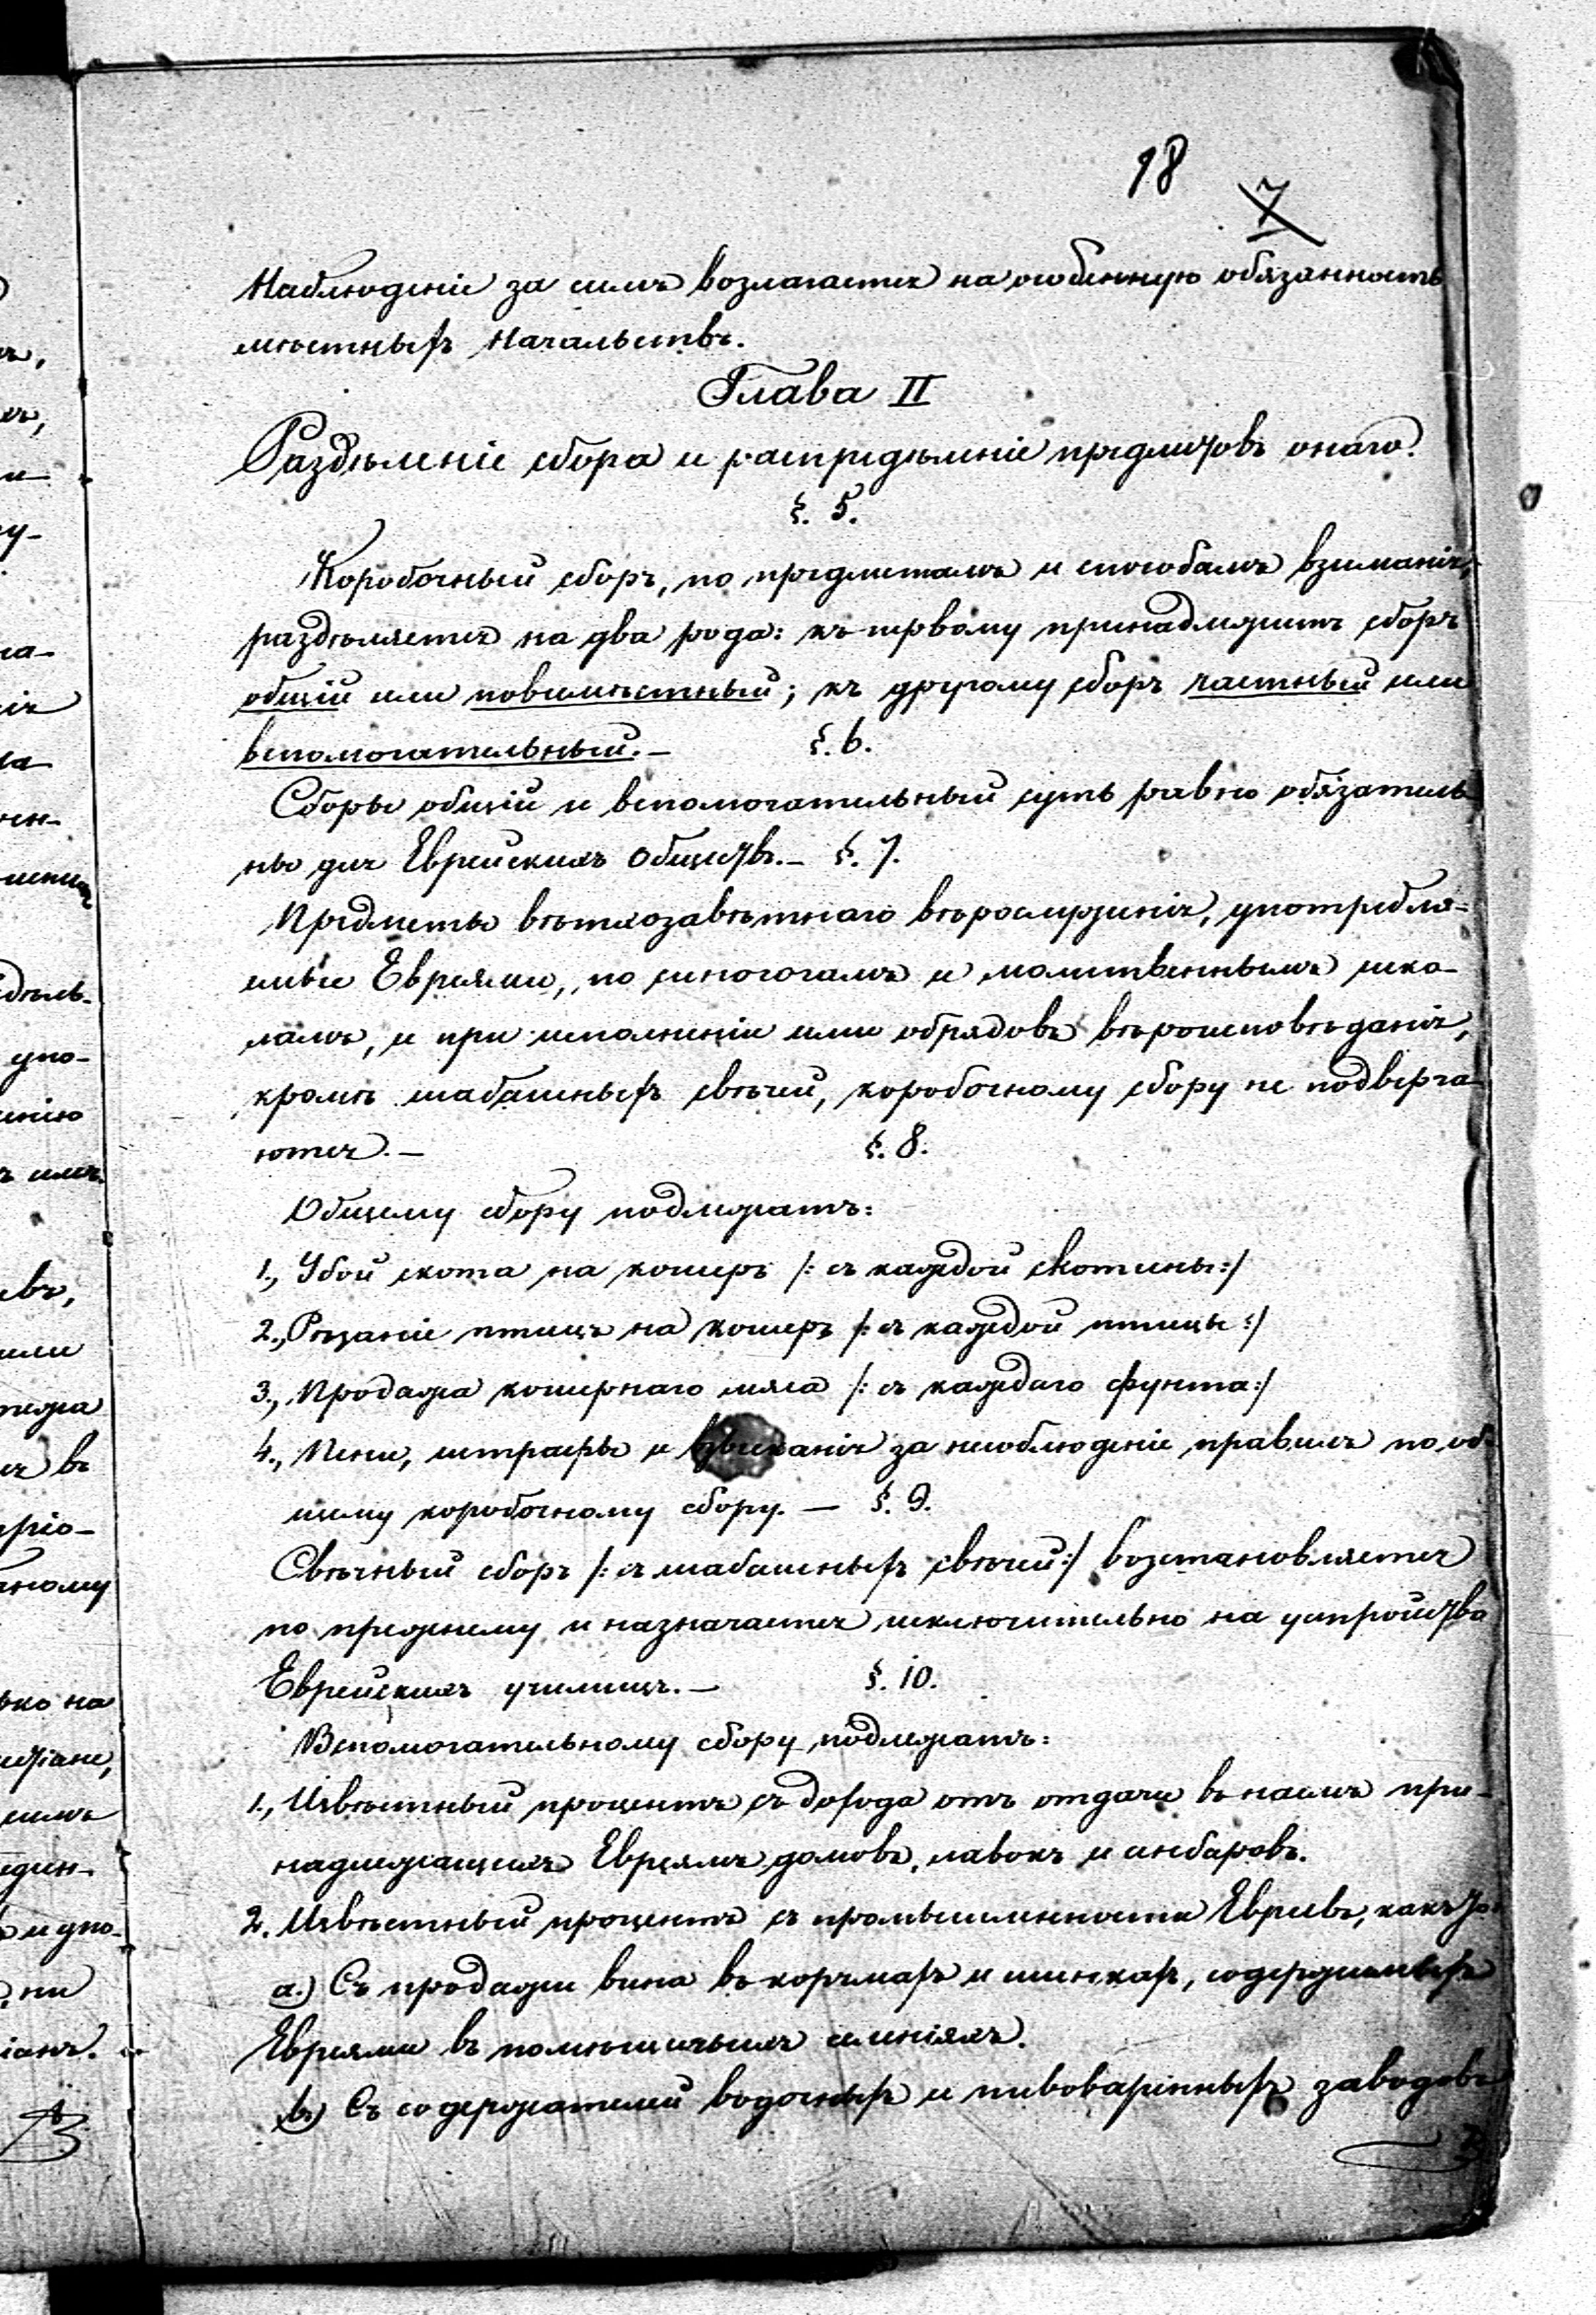 18 7
Наблюденіе за симъ возлагается на особенную обязанность
мѣстныхъ Начальствъ.
Глава II
Раздѣленіе сбора и распредѣленіе предметовъ онаго.
§. 5.
Коробочный сборъ, по предметамъ и способамъ взиманія,
раздѣляется на два рода: къ первому принадлежитъ сборъ
общій или повсемѣстный; къ другому сборъ частный или
вспомогательный. — §. 6.
Сборы общій и вспомогательный суть равно обязатель
ны для Еврейскихъ обществъ. — §. 7.
Предметы ветхозавѣтнаго вѣрослуженія, употребля-
емые Евреями, по синогогамъ и молитвеннымъ шко-
ламъ, и при исполненіи ими обрядовъ вѣроисповѣданія,
кромѣ шабашныхъ свѣчей, коробочному сбору не подверга-
ются. — §. 8.
Общему сбору подлежатъ:
1., Убой скота на кошеръ /: съ каждой скотины :/
2., Рѣзаніе птицъ на кошеръ /: съ каждой птицы :/
3., Продажа кошернаго мяса /: съ каждаго фунта :/
4., Пени, штрафы и взысканія за несоблюденіе правилъ по об-
щему коробочному сбору. — §. 9.
Свѣчный сборъ /: съ шабашныхъ свѣчей :/ возстановляется
по прежнему и назначается исключительно на устройство
Еврейскихъ училищъ. — §. 10.
Вспомогательному сбору подлежатъ:
1., Извѣстный процентъ съ дохода отъ отдачи въ наемъ при-
надлежащихъ Евреямъ домовъ, лавокъ и амбаровъ.
2. Извѣстный процентъ съ промышленности Евреевъ, какъ то:
а.) Съ продажи вина въ корчмахъ и шинкахъ, содержимыхъ
Евреями въ помѣщичьихъ имѣніяхъ.
b.) Съ содержателей водочныхъ и пивоваренныхъ заводовъ